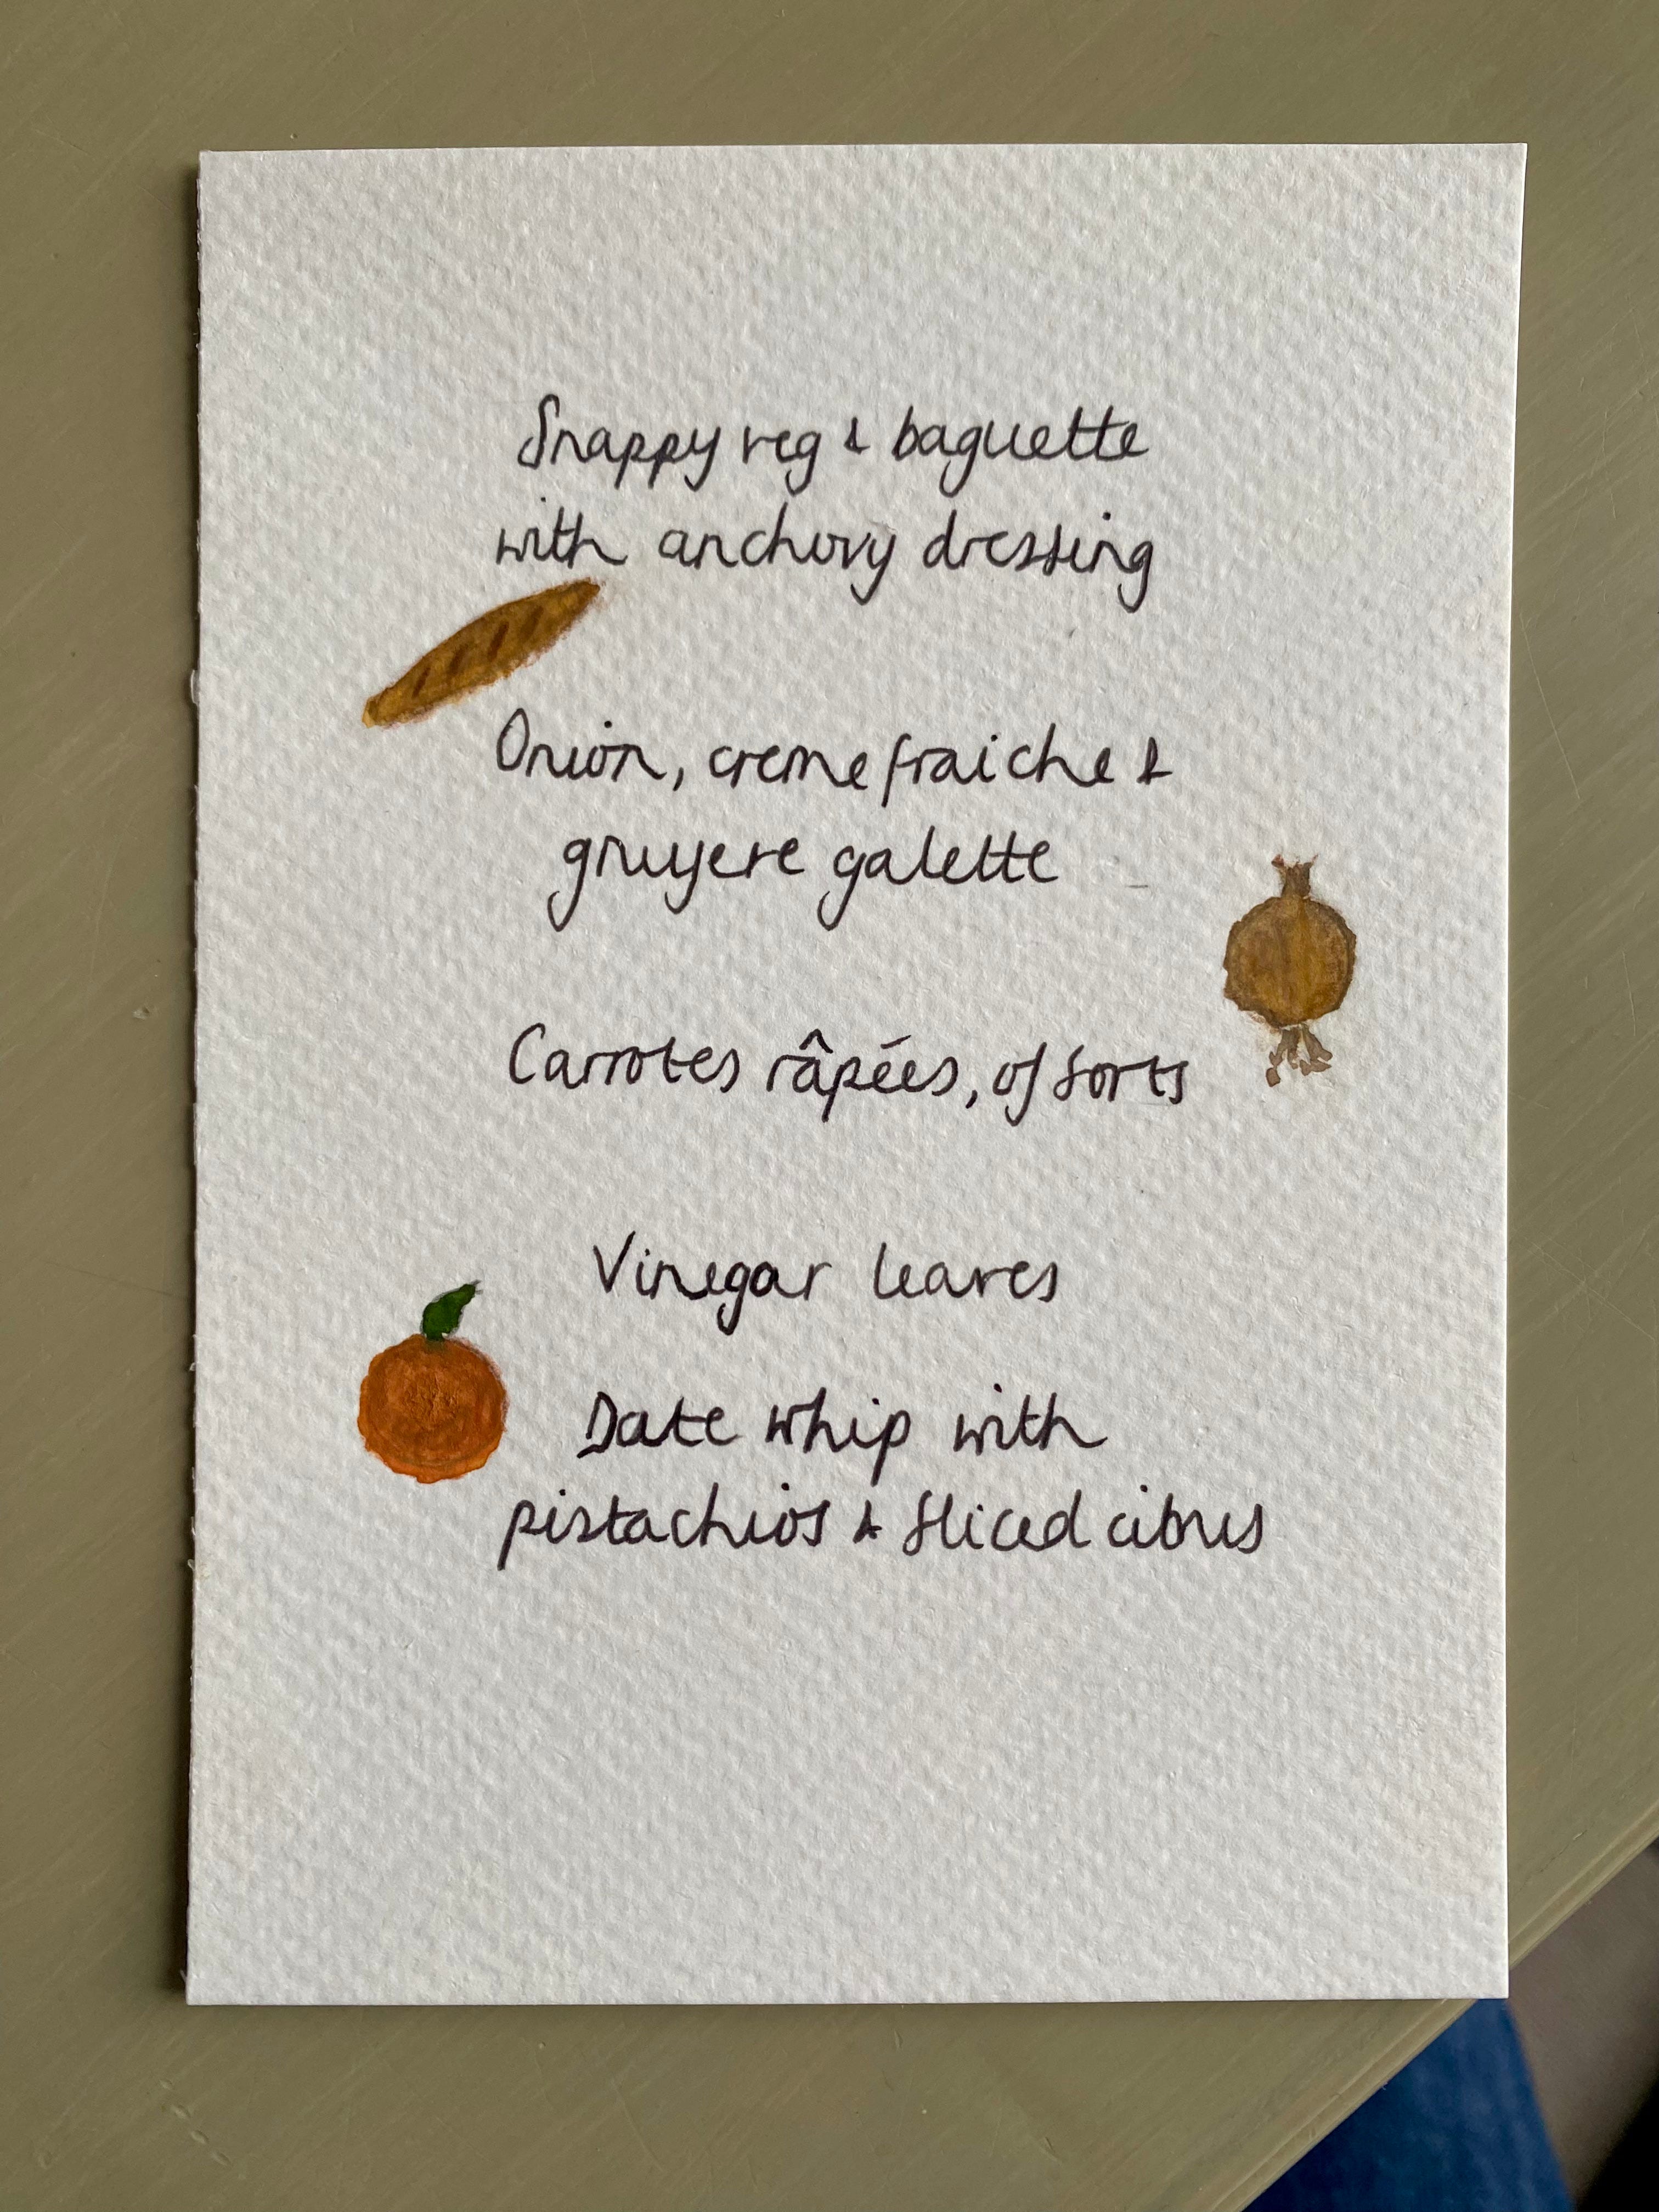 Snappy veg & baguette
with anchovy dressing
Onion, creme fraiche &
gruyere galette
Carrotes râpées, of sorts
Vinegar leaves
Date whip with
pistachios & sliced citrus